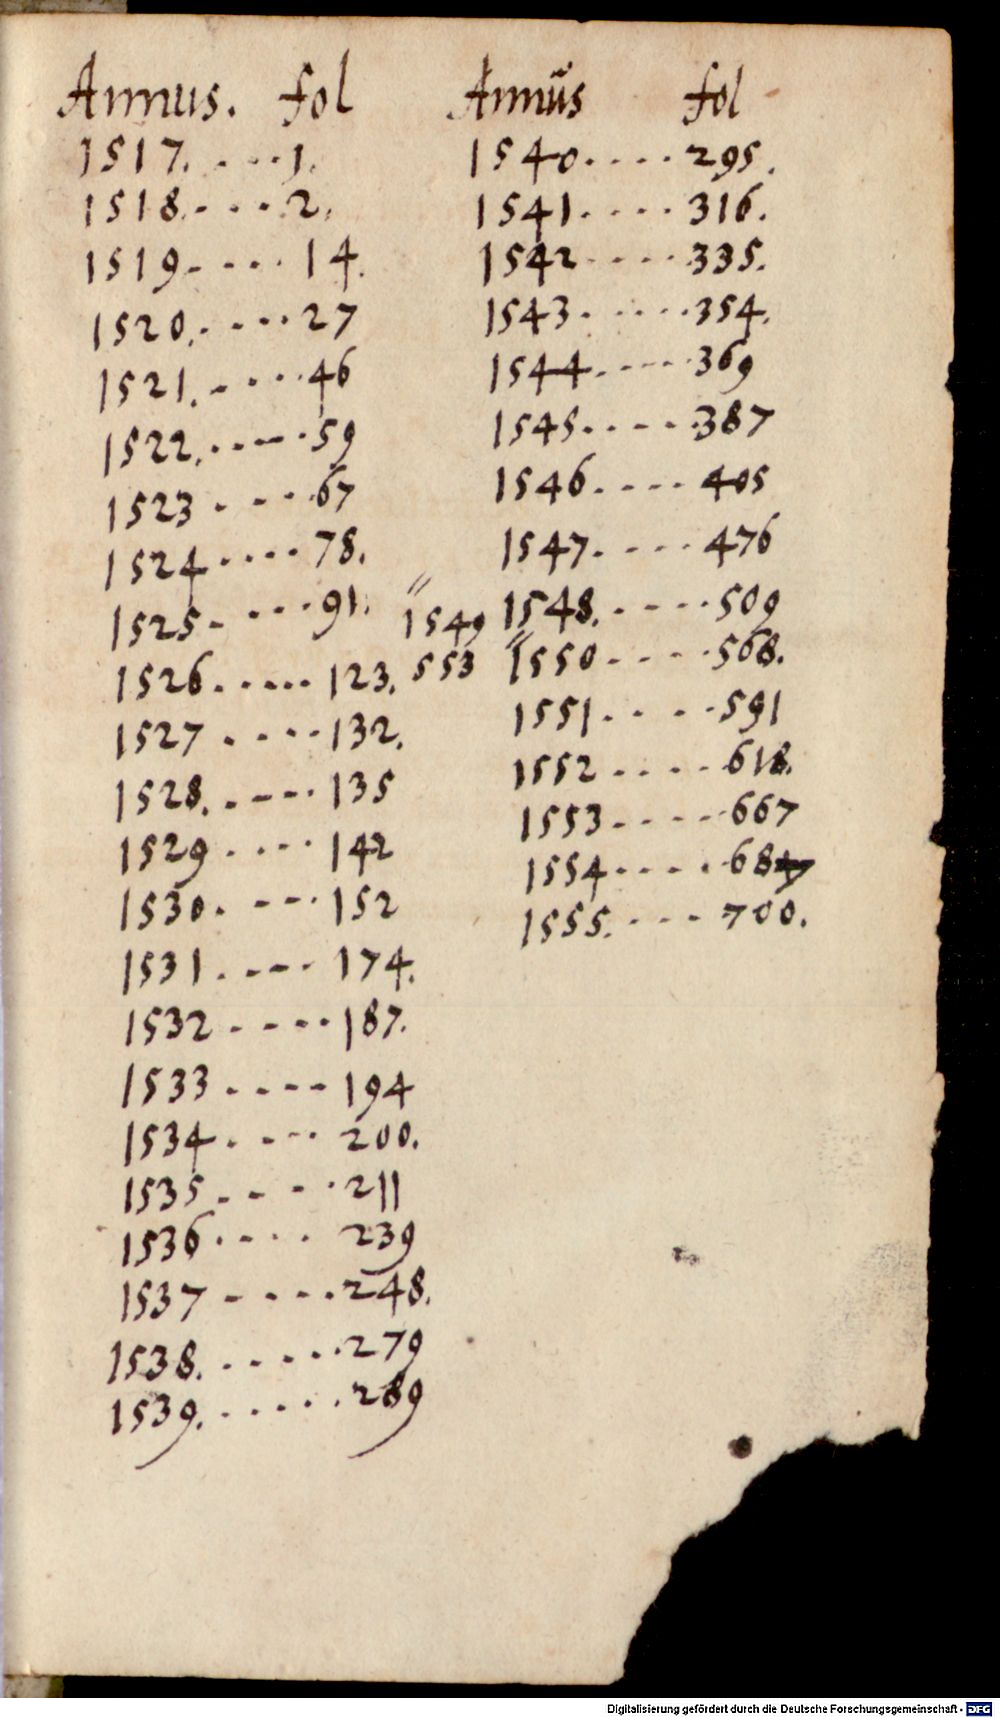 Annus. fol
1517. . . . 1.
1518. . . . 2.
1519. . . . 14.
1520. . . . 27
1521. . . . 46
1522. . . . . 59
1523 . . . . 67
1524 . . . . 78.
1525 . . . . 91.
1526 . . . . . 123.
1527 . . . . 132.
1528. . . . . 135
1529 . . . . 142
1530 . . . . 152
1531 . . . . 174.
1532 . . . . 187.
1533 . . . . 194
1534 . . . . 200.
1535 . . . . 211
1536 . . . . 239
1537 . . . . 248.
1538. . . . . . 279
1539. . . . . . 289
Annus fol
1540 . . . . 295.
1541 . . . . 316.
1542 . . . . 335.
1543 . . . . . 354.
1544 . . . . . 369
1545 . . . . . 387
1546 . . . . 405
1547 . . . . 476
1548. . . . . 509
1549
553
1550 . . . . 568.
1551 . . . . 591
1552 . . . . 618.
1553 . . . . . 667
1554 . . . . 684
1555. . . . 700.
Digitalisierung gefördert durch die Deutsche Forschungsgemeinschaft - DFG